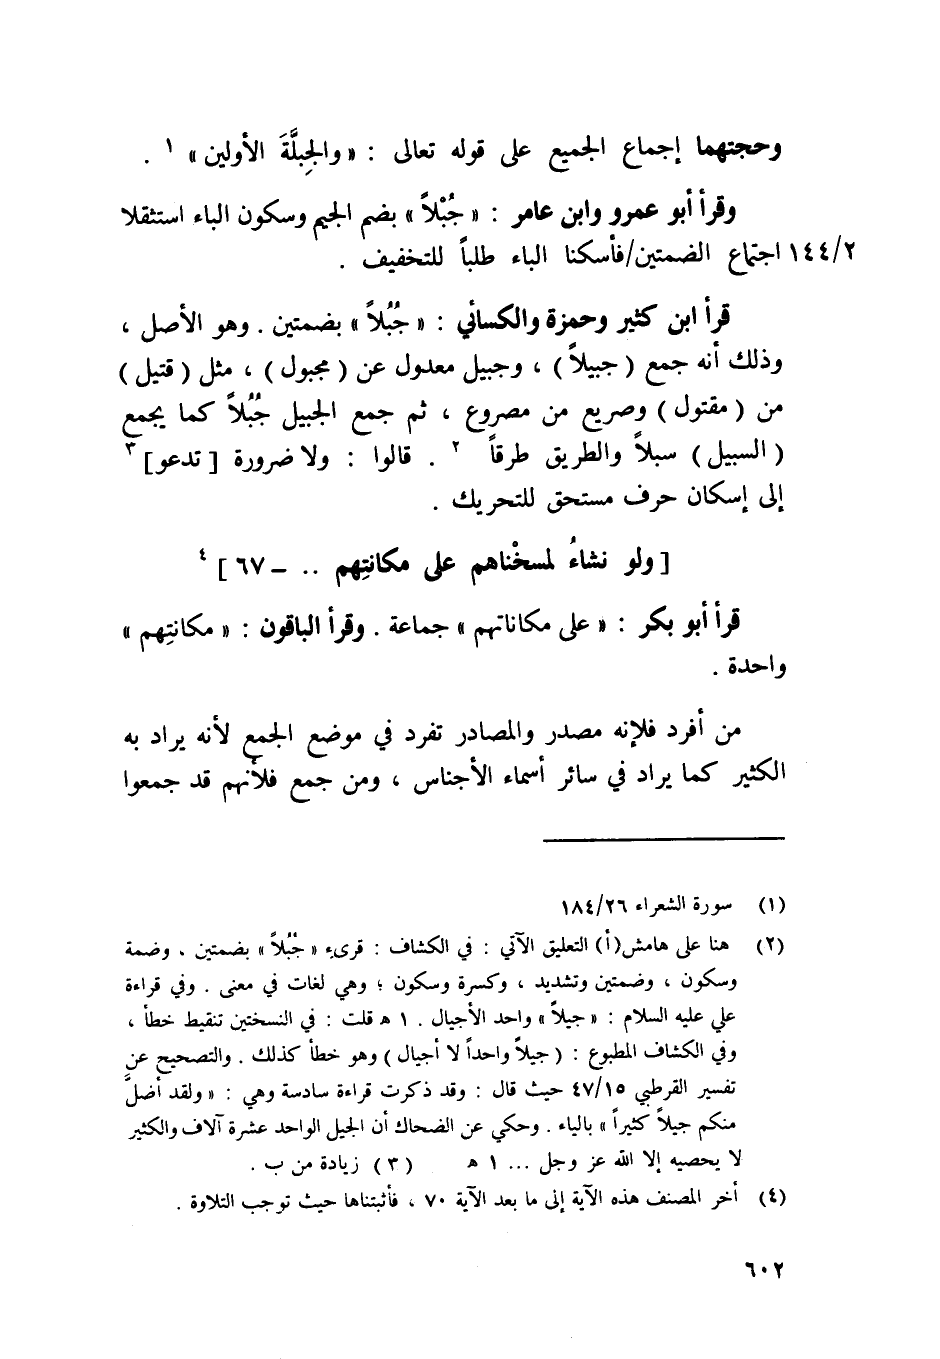 وحجتهما إجماع الجميع على قوله تعالى : « والجِبِلَّةَ الأولين » ١ .
وقرأ أبو عمرو وابن عامر : « جُبْلاً » بضم الجيم وسكون الباء استثقلا
١٤٤/٢ اجتماع الضمتين/فأسكنا الباء طلباً للتخفيف .
قرأ ابن كثير وحمزة والكسائي : « جُبُلاً » بضمتين . وهو الأصل ،
وذلك أنه جمع ( جبيلاً ) ، وجبيل معدول عن ( مجبول ) ، مثل ( قتيل )
من ( مقتول ) وصريع من مصروع ، ثم جمع الجبيل جُبُلاً كما يجمع
( السبيل ) سبلاً والطريق طرقاً ٢ . قالوا : ولا ضرورة [ تدعو ] ٣
إلى إسكان حرف مستحق للتحريك .
[ ولو نشاءُ لمسخْناهم على مكانتِهم .. ــ ٦٧ ] ٤
قرأ أبو بكر : « على مكاناتهم » جماعة . وقرأ الباقون : « مكانتِهم »
واحدة .
من أفرد فلإنه مصدر والمصادر تفرد في موضع الجمع لأنه يراد به
الكثير كما يراد في سائر أسماء الأجناس ، ومن جمع فلأنهم قد جمعوا
(١) سورة الشعراء ١٨٤/٢٦
(٢) هنا على هامش(أ) التعليق الآتي : في الكشاف : قرىء « جُبُلاً » بضمتين . وضمة
وسكون ، وضمتين وتشديد ، وكسرة وسكون ؛ وهي لغات في معنى . وفي قراءة
علي عليه السلام : « جيلاً » واحد الأجيال . ١ هـ قلت : في النسختين تنقيط خطأ ،
وفي الكشاف المطبوع : ( جيلاً واحداً لا أجيال ) وهو خطأ كذلك . والتصحيح عن
تفسير القرطبي ٤٧/١٥ حيث قال : وقد ذكرت قراءة سادسة وهي : « ولقد أضلَّ
منكم جيلاً كثيراً » بالياء . وحكي عن الضحاك أن الجيل الواحد عشرة آلاف والكثير
لا يحصيه إلا الله عز وجل ... ١ هـ ( ٣ ) زيادة من ب .
(٤) أخر المصنف هذه الآية إلى ما بعد الآية ٧٠ ، فأثبتناها حيث توجب التلاوة .
٦٠٢